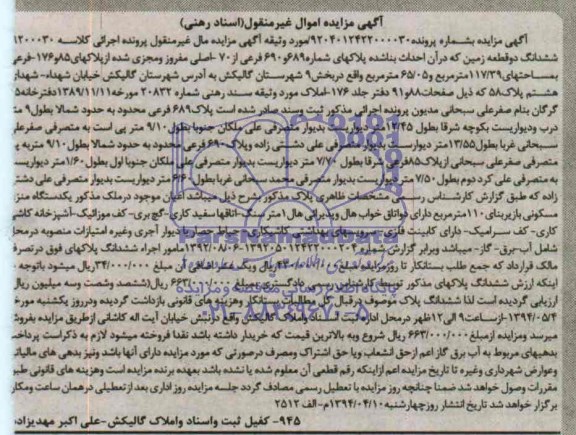 آگهی مزایده اموال غیرمنقول(اسناد رهنی)
آگهی مزایده بشماره پرونده۹۲۰۴۰۱۲۴۲۲۰۰۰۰۳۰مورد وثیقه آگهی مزایده مال غیرمنقول پرونده اجرائی کلاسه ۱۲۰۰۰۳۰
ششدانگ دوقطعه زمین که درآن احداث بناشده پلاکهای شماره۶۸۹و۶۹۰ فرعی از۷۰ -اصلی مفروز ومجزی شده ازپلاکهای۸۵و۱۷۶-فرعی
بمساحتهای۱۱۷/۳۹مترمربع و۶۵/۰۵ مترمربع واقع دربخش۹ شهرستان گالیکش به آدرس شهرستان گالیکش خیابان شهداء- شهدای
هشتم پلاک۵۸ که ذیل صفحات۸۸و۹۱ دفتر جلد ۱۷۶-املاک مورد وثیقه سند رهنی شماره ۲۰۸۳۲ مورخه۱۳۸۹/۱۱/۱۱دفترخانه۵۸
گرگان بنام صفرعلی سبحانی مدیون پرونده اجرائی مذکور ثبت وسند صادر شده است پلاک۶۸۹ فرعی محدود به حدود شمالا بطول۹ متر
درب ودیواریست بکوچه شرقا بطول ۱۲/۴۵متر دیواریست بدیوار متصرفی علی ملکان جنوبا بطول ۹/۱۰ متر پی است به متصرفی صفرعلی
سبحانی غربا بطول۱۳/۵۵متر دیواریست بدیوار متصرفی علی دشتی زاده وپلاک۶۹۰ فرعی محدود به حدود شمالا بطول ۹/۱۰ متربه پی
متصرفی صفرعلی سبحانی ازپلاک۸۵فرعی شرقا بطول ۷/۷۰ متر دیواریست بدیوار متصرفی علی ملکان جنوبا اول بطول۱/۶۰متر دیواریست
به متصرفی علی کرد دوم بطول ۷/۵۰ متر دیواریست بدیوار متصرفی محمد سبحانی غربا بطول ۶/۶۰ متر دیواریست بدیوار متصرفی علی دشتی
زاده که طبق گزارش کارشناس رسمی مشخصات ظاهری پلاک مذکور بشرح ذیل میباشد اعیان موجود درملک مذکور یکدستگاه منزل
مسکونی بازیربنای ۱۱۰مترمربع دارای دواتاق خواب هال وپذیرائی هال ۱متر سنگ-اتاقها سفید کاری-گچ بری- کف موزائیک-آشپزخانه کاشی
کاری- کف سرامیک- دارای کابینت فلزی- سرویسهای بهداشتی کاشیکاری - حیاط حصار با دیوار آجری وغیره امتیازات منصوبه درمحل
شامل آب-برق- گاز- میباشد وبرابر گزارش شماره مامور اجراء ششدانگ پلاکهای فوق در تصرف
مالک قرارداد که جمع طلب بستانکار تا روزمزایده مبلغ ریال باتوجه به
اینکه ارزش ششدانگ پلاکهای مذکور توسط کارشناس رسمی دادگستری بمبلغ ۶۶۳/۰۰۰/۰۰۰ریال(ششصد وشصت وسه میلیون ریال)
ارزیابی گردیده است لذا ششدانگ پلاک موصوف درقبال کل مطالبات بستانکار وهزینه های قانونی بازداشت گردیده ودرروز یکشنبه مورخه
۱۳۹۴/۰۵/۴-ازساعت۹ الی۱۲ظهر درمحل اداره ثبت اسناد واملاک گالیکش واقع درنبش خیابان آیت اله کاشانی ازطریق مزایده بفروش
میرسد ومزایده ازمبلغ۶۶۳/۰۰۰/۰۰۰ ریال شروع وبه بالاترین قیمت که خریدار داشته باشد نقدا فروخته میشود لازم به ذکراست پرداخت
بدهیهای مربوط به آب برق گاز اعم ازحق انشعاب ویا حق اشتراک ومصرف درصورتی که مورد مزایده دارای آنها باشد ونیز بدهی های مالیاتی
وعوارض شهرداری وغیره تا تاریخ مزایده اعم ازاینکه رقم قطعی آن معلوم شده یا نشده باشد بعهده برنده مزایده است وهزینه های قانونی طبق
مقررات وصول خواهد شد ضمنا چنانچه روز مزایده با تعطیل رسمی مصادف گردد جلسه مزایده روز اداری بعد ازتعطیلی درهمان ساعت ومکان
برگزار خواهد شد تاریخ انتشار روزچهارشنبه۱۳۹۴/۰۴/۱۰م-الف ۲۵۱۲
۹۴۵- کفیل ثبت واسناد واملاک گالیکش-علی اکبر مهدیزاده